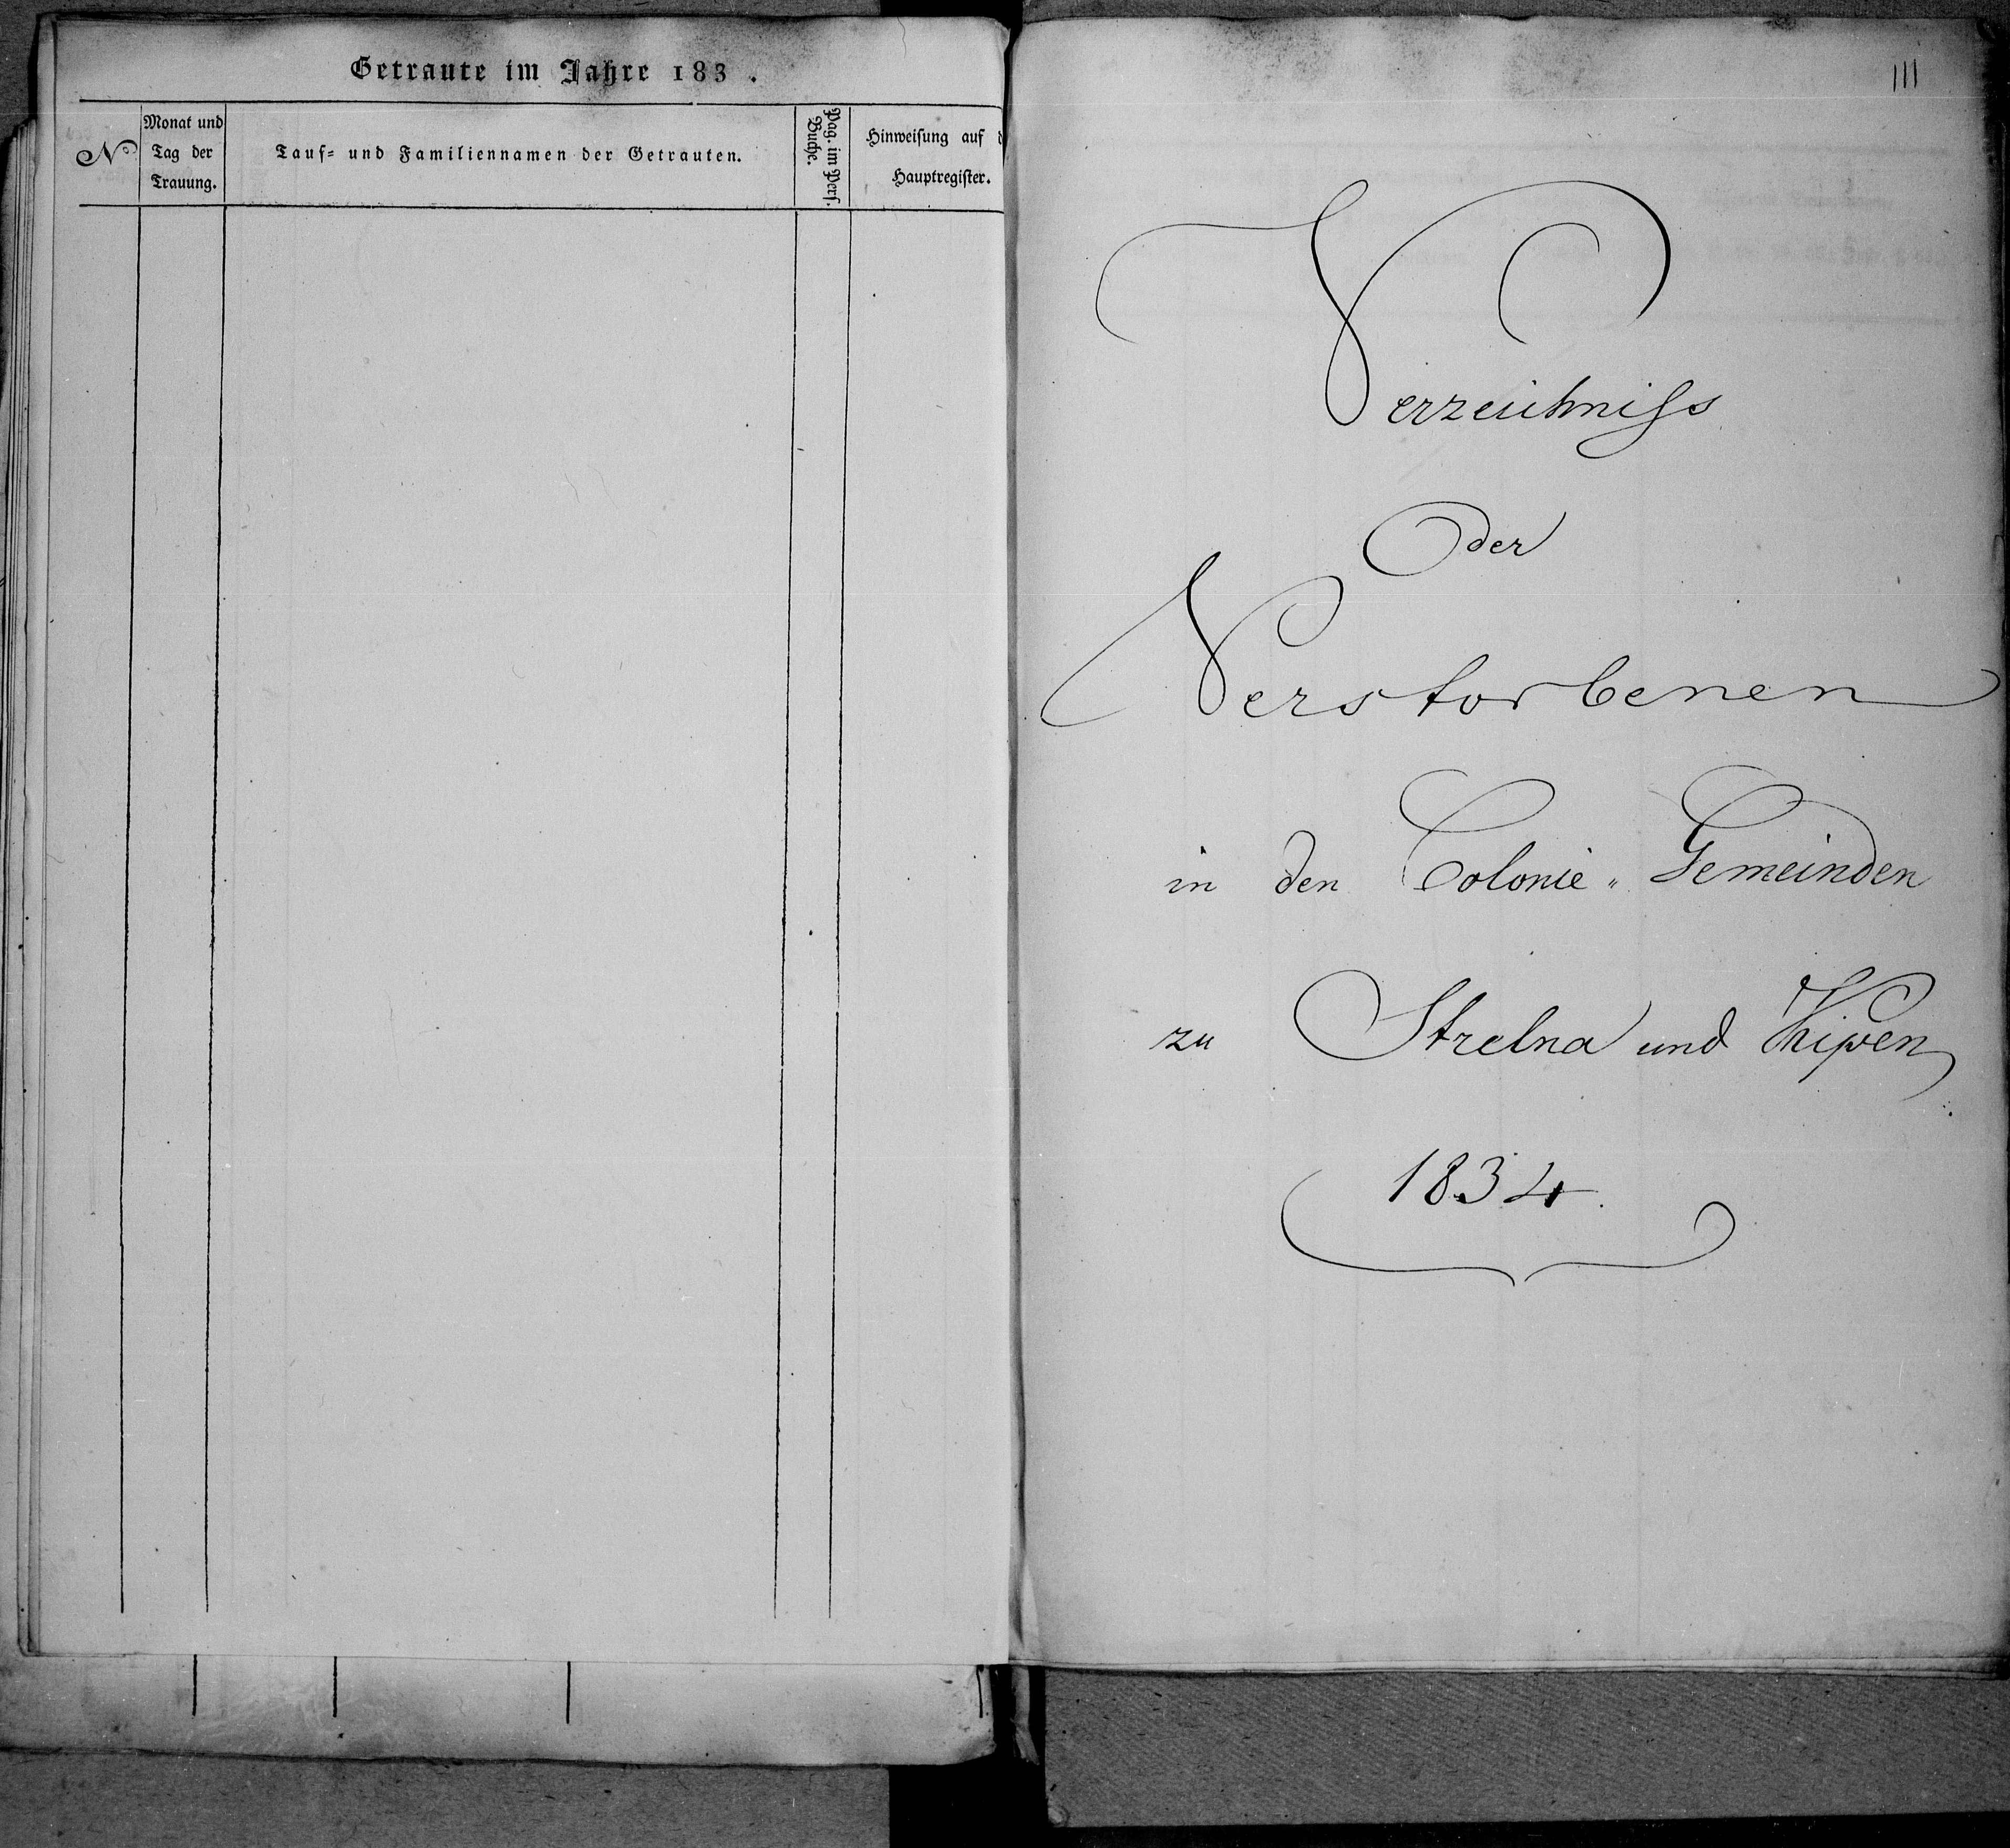 Getraute im Jahre 183 .
No
Monat und
Tag der
Trauung.
Tauf- und Familiennamen der Getrauten.
Pag. im Pers.
Buche.
Hinweisung auf d
Hauptregister.
111
Verzeichniss
der
Verstorbenen
in den Colonie-Gemeinden
zu Strelna und Kipen
1834.